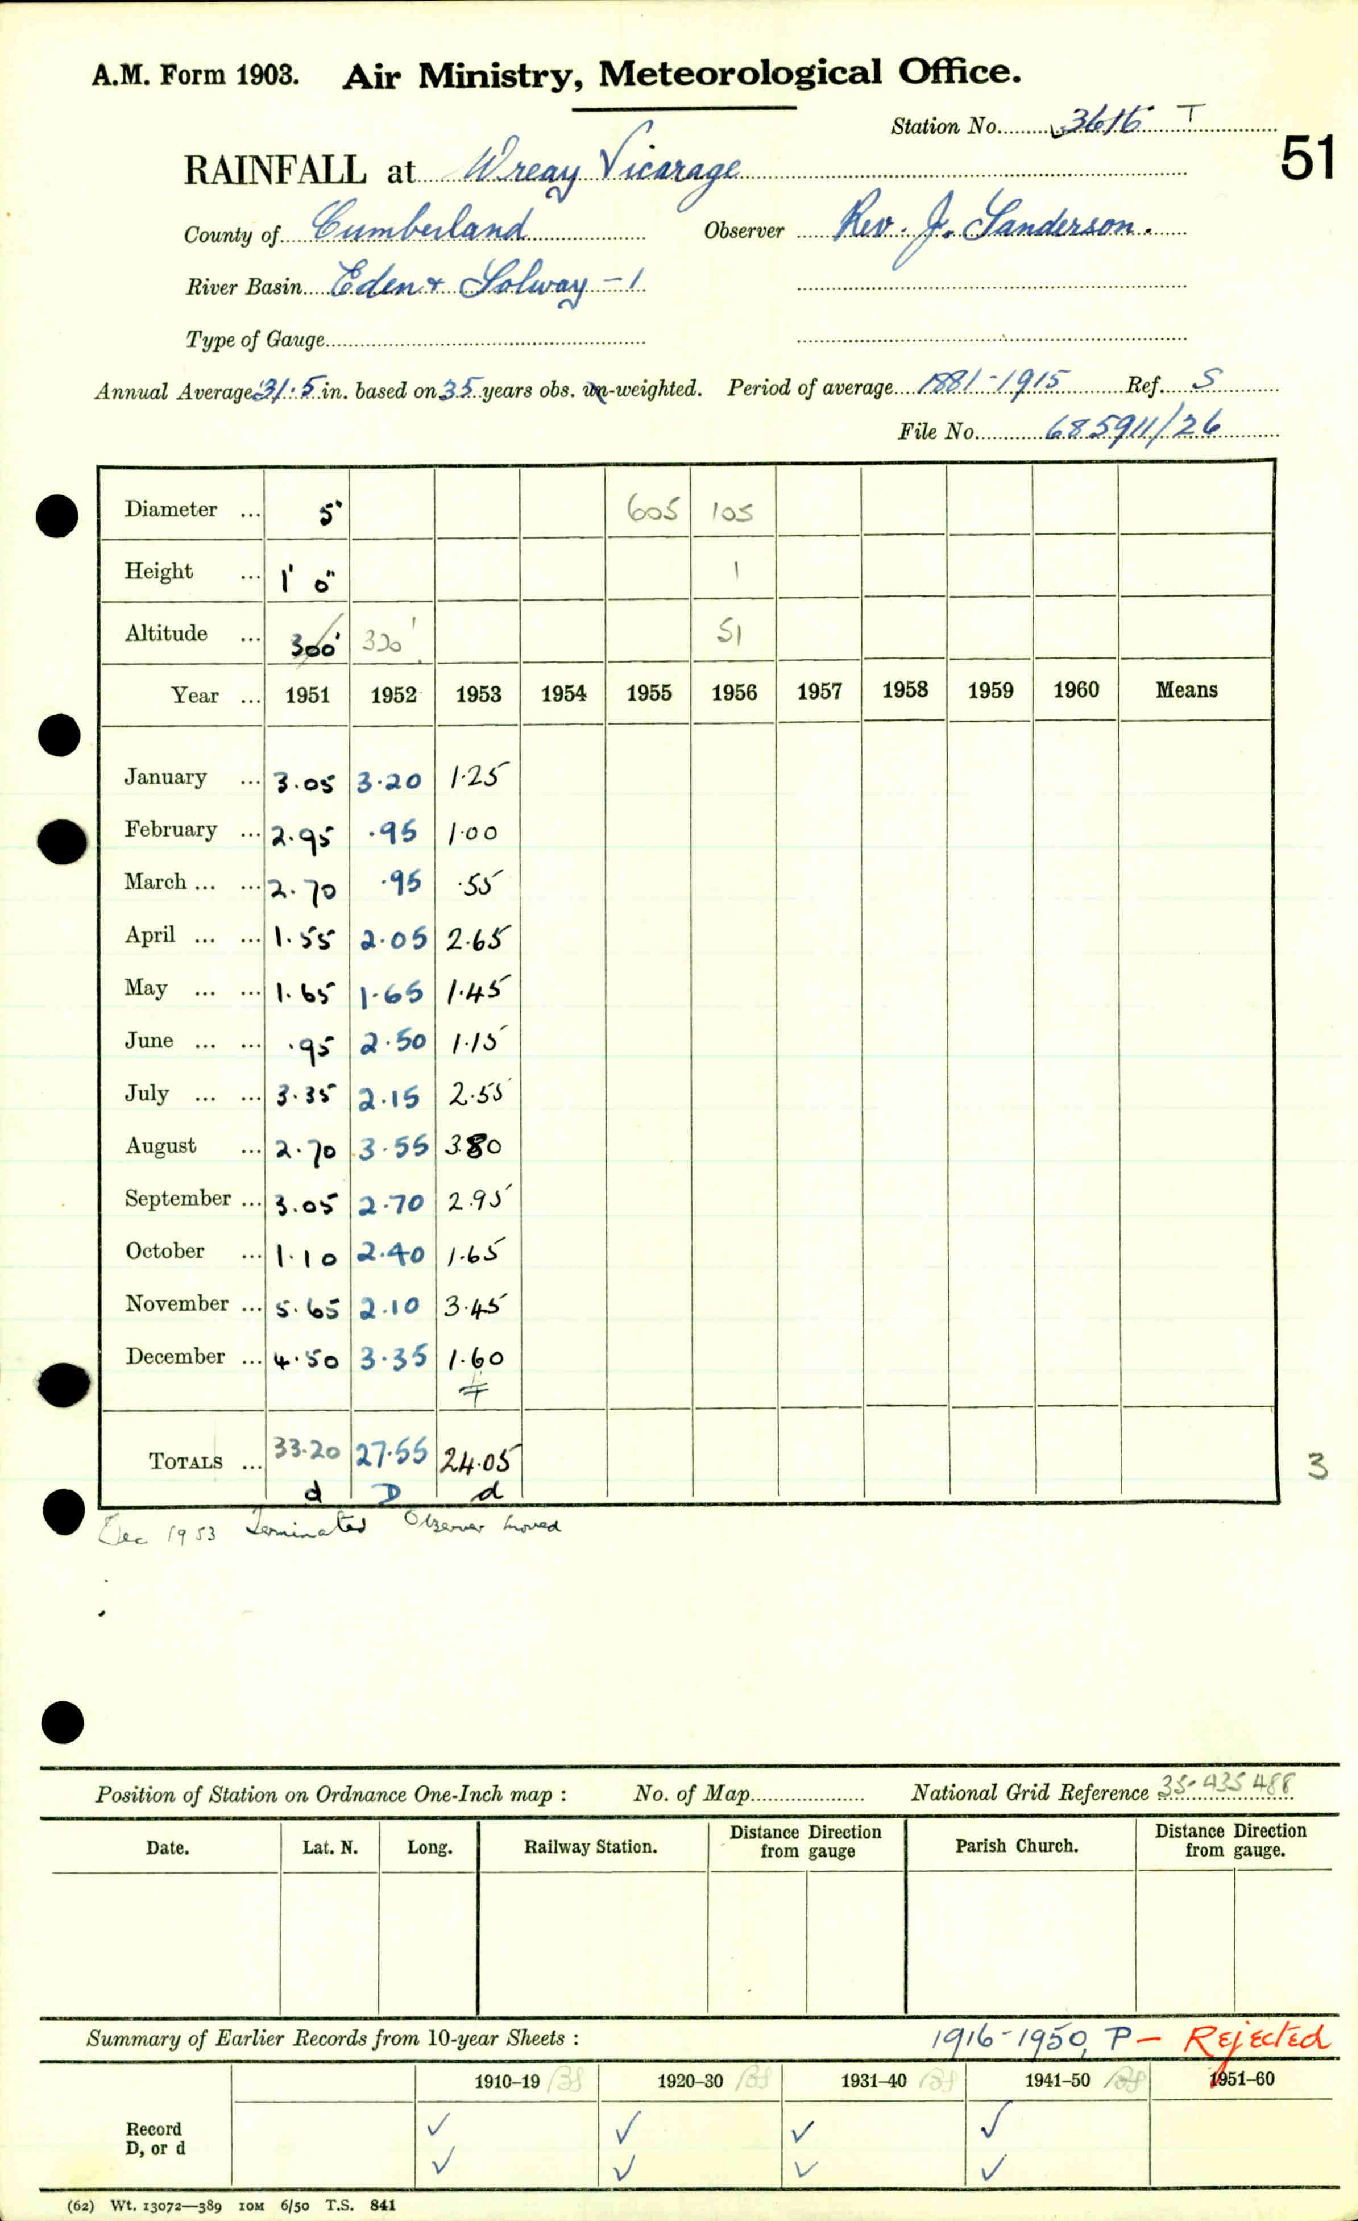 A.M. Form 1903. Air Ministry, Meteorological Office.
Station No. 3616 T
51
RAINFALL at Wreay Vicarage
County of Cumberland Observer Rev. J. Sanderson.
River Basin Eden & Solway - 1
Type of Gauge
Annual Average 31.5 in. based on 35 years obs. un-weighted. Period of average 1881-1915 Ref. S
File No. 685911/26
Diameter ... 5" 605 105
Height ... 1' 0" 1
Altitude ... 300' 320' 51
Year ... 1951 1952 1953 1954 1955 1956 1957 1958 1959 1960 Means
January ... 3.05 3.20 1.25
February ... 2.95 .95 1.00
March ... ... 2.70 .95 .55
April ... ... 1.55 2.05 2.65
May ... ... 1.65 1.65 1.45
June ... ... .95 2.50 1.15
July ... ... 3.35 2.15 2.55
August ... 2.70 3.55 3.80
September ... 3.05 2.70 2.95
October ... 1.10 2.40 1.65
November ... 5.65 2.10 3.45
December ... 4.50 3.35 1.60
TOTALS ... 33.20 27.55 24.05
d D d
3
Dec 1953 Terminated Observer moved
Position of Station on Ordnance One-Inch map : No. of Map National Grid Reference 35-435488
Date. Lat. N. Long. Railway Station. Distance from Direction gauge Parish Church. Distance from Direction gauge.
Summary of Earlier Records from 10-year Sheets : 1916-1950, P - Rejected
1910-19 1920-30 1931-40 1941-50 1951-60
Record ✓ ✓ ✓ ✓
D, or d ✓ ✓ ✓ ✓
(62) Wt. 13072—389 10M 6/50 T.S. 841